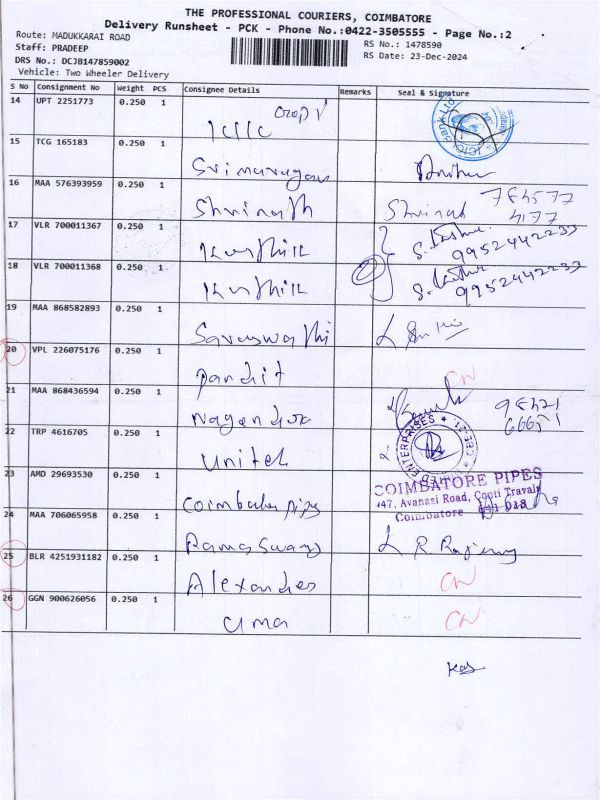 THE PROFESSIONAL COURIERS, COIMBATORE
Delivery Runsheet - PCK - Phone No.:0422-3505555 - Page No.:2
Route: MADUKKARAI ROAD
Staff: PRADEEP
RS No.: 1478590
DRS No.: DCJB147859002
RS Date: 23-Dec-2024
Vehicle: Two Wheeler Delivery
S No Consignment No Weight PCS Consignee Details Remarks Seal & Signature
14 UPT 2251773 0.250 1
ICICI Bank Ltd
15 TCG 165183 0.250 1
16 MAA 576393959 0.250 1 Shrinath
17 VLR 700011367 0.250 1 Karthik 9952442233
18 VLR 700011368 0.250 1 Karthik 9952442233
19 MAA 868582893 0.250 1 Saraswathi
20 VPL 226075176 0.250 1 Pandit CN
21 MAA 868436594 0.250 1
22 TRP 4616705 0.250 1 Unitech
ENTERPRISES
23 AMD 29693530 0.250 1 Coimbatore pipes
COIMBATORE PIPES
747, Avanasi Road,
Coimbatore 641 018
24 MAA 706065958 0.250 1 Ramaswamy
25 BLR 4251931182 0.250 1 Alexander CN
26 GGN 900626056 0.250 1 Uma CN